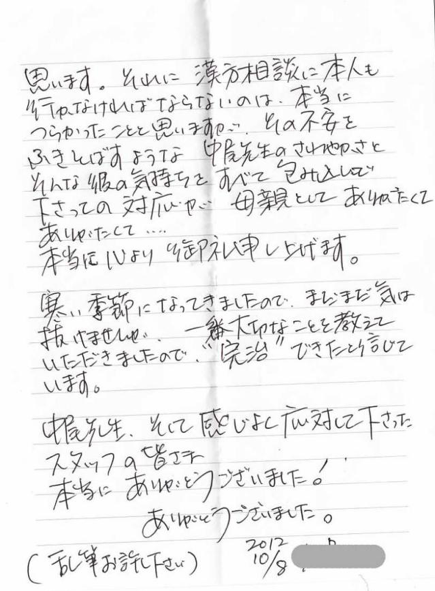 思います。それに 漢方相談に本人も
行かなければならないのは、本当に
つらかったことと思いますが、その不安を
ふきとばすような 中尾先生のさわやかさと
そんな彼の気持ちを すべて 包み込んで
下さっての 対応が 母親として ありがたくて
ありがたくて....
本当に心より 御礼申し上げます。
寒い季節になってきましたので、まだまだ気は
抜けませんが、一番大切なことを教えて
いただきましたので、"完治"できたと信じて
います。
中尾先生、そして 感じよく応対して下さった
スタッフの皆さま
本当に ありがとうございました!
ありがとうございました。
(乱筆お許し下さい)
2012
10/8